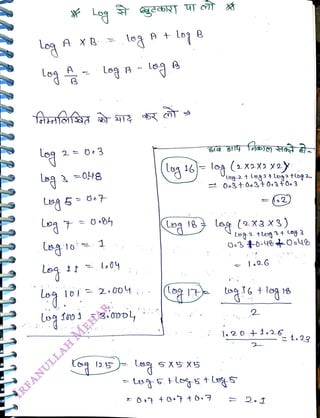 * Log से छुटकारा पा लो *
Log A × B = Log A + Log B
Log A/B = Log A - Log B
निम्नलिखित को याद कर लो →
Log 2 = 0.3
Log 3 = 0.48
Log 5 = 0.7
Log 7 = 0.84
Log 10 = 1
Log 11 = 1.04
Log 101 = 2.004
Log 1001 = 3.0004
अब आप निकाल सकते हो:-
Log 16 = log (2×2×2×2)
log 2 + log 2 + log 2 + log 2
= 0.3 + 0.3 + 0.3 + 0.3
= 1.2
Log 18 = log (2×3×3)
log 2 + log 3 + log 3
0.3 + 0.48 + 0.48
= 1.26
Log 17 = log 16 + log 18
2
1.20 + 1.26
2
= 1.23
Log 125 = log 5×5×5
= Log 5 + Log 5 + Log 5
= 0.7 + 0.7 + 0.7 = 2.1